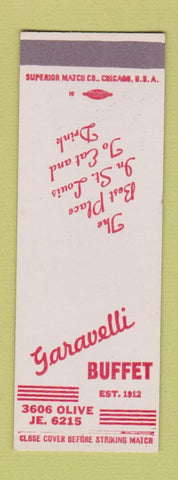 SUPERIOR MATCH CO., CHICAGO, U.S.A.
The
Best Place
In St. Louis
To Eat and
Drink
Garavelli
BUFFET
EST. 1912
3606 OLIVE
JE. 6215
CLOSE COVER BEFORE STRIKING MATCH